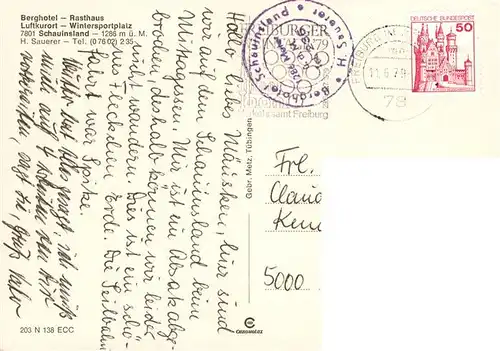 Berghotel - Rasthaus
Luftkurort - Wintersportplatz
7801 Schauinsland - 1286 m ü. M.
H. Sauerer - Tel. (0 76 02) 2 35
Hallo, liebes Mäusken, hier sind
wir auf dem Schauinsland beim
Mittagessen. Mir ist ein Absatz abge-
brochen, deshalb können wir leider
nicht wandern. Dies ist ein schö-
nes Fleckchen Erde. Die Seilbahn-
fahrt war Spitze.
Mutter hat eben gesagt, ich muß
sagt sie, Gruß Vater
203 N 138 ECC
Gebr. Metz, Tübingen
Berghotel Schauinsland
H Sauerer
1286 M.ü.M.
79
amt Freiburg
FREIBURG
11.6.79
78
DEUTSCHE BUNDESPOST
50
Frl.
Claud
Ken
5000